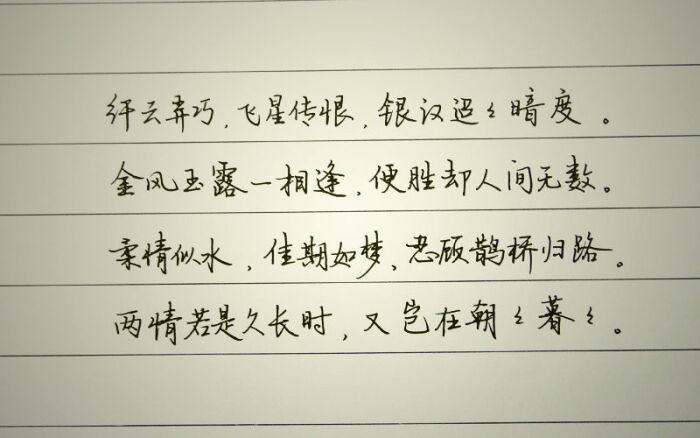 纤云弄巧,飞星传恨,银汉迢々暗度。
金风玉露一相逢,便胜却人间无数。
柔情似水,佳期如梦、忍顾鹊桥归路。
两情若是久长时,又岂在朝々暮々。